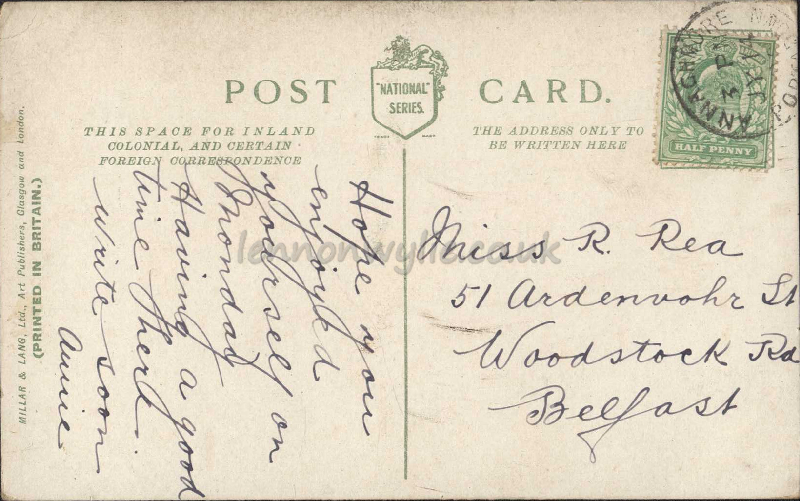 POST CARD.
"NATIONAL"
SERIES.
THIS SPACE FOR INLAND
COLONIAL, AND CERTAIN
FOREIGN CORRESPONDENCE
THE ADDRESS ONLY TO
BE WRITTEN HERE
HALF PENNY
ANNAGHMORE
MILLAR & LANG, Ltd., Art Publishers, Glasgow and London.
(PRINTED IN BRITAIN.)
Hope you
enjoyed
yourself on
Monday
Having a good
time there.
write soon
Annie
Miss R. Rea
51 Ardenvohr St
Woodstock Rd
Belfast
lennonwylie.co.uk